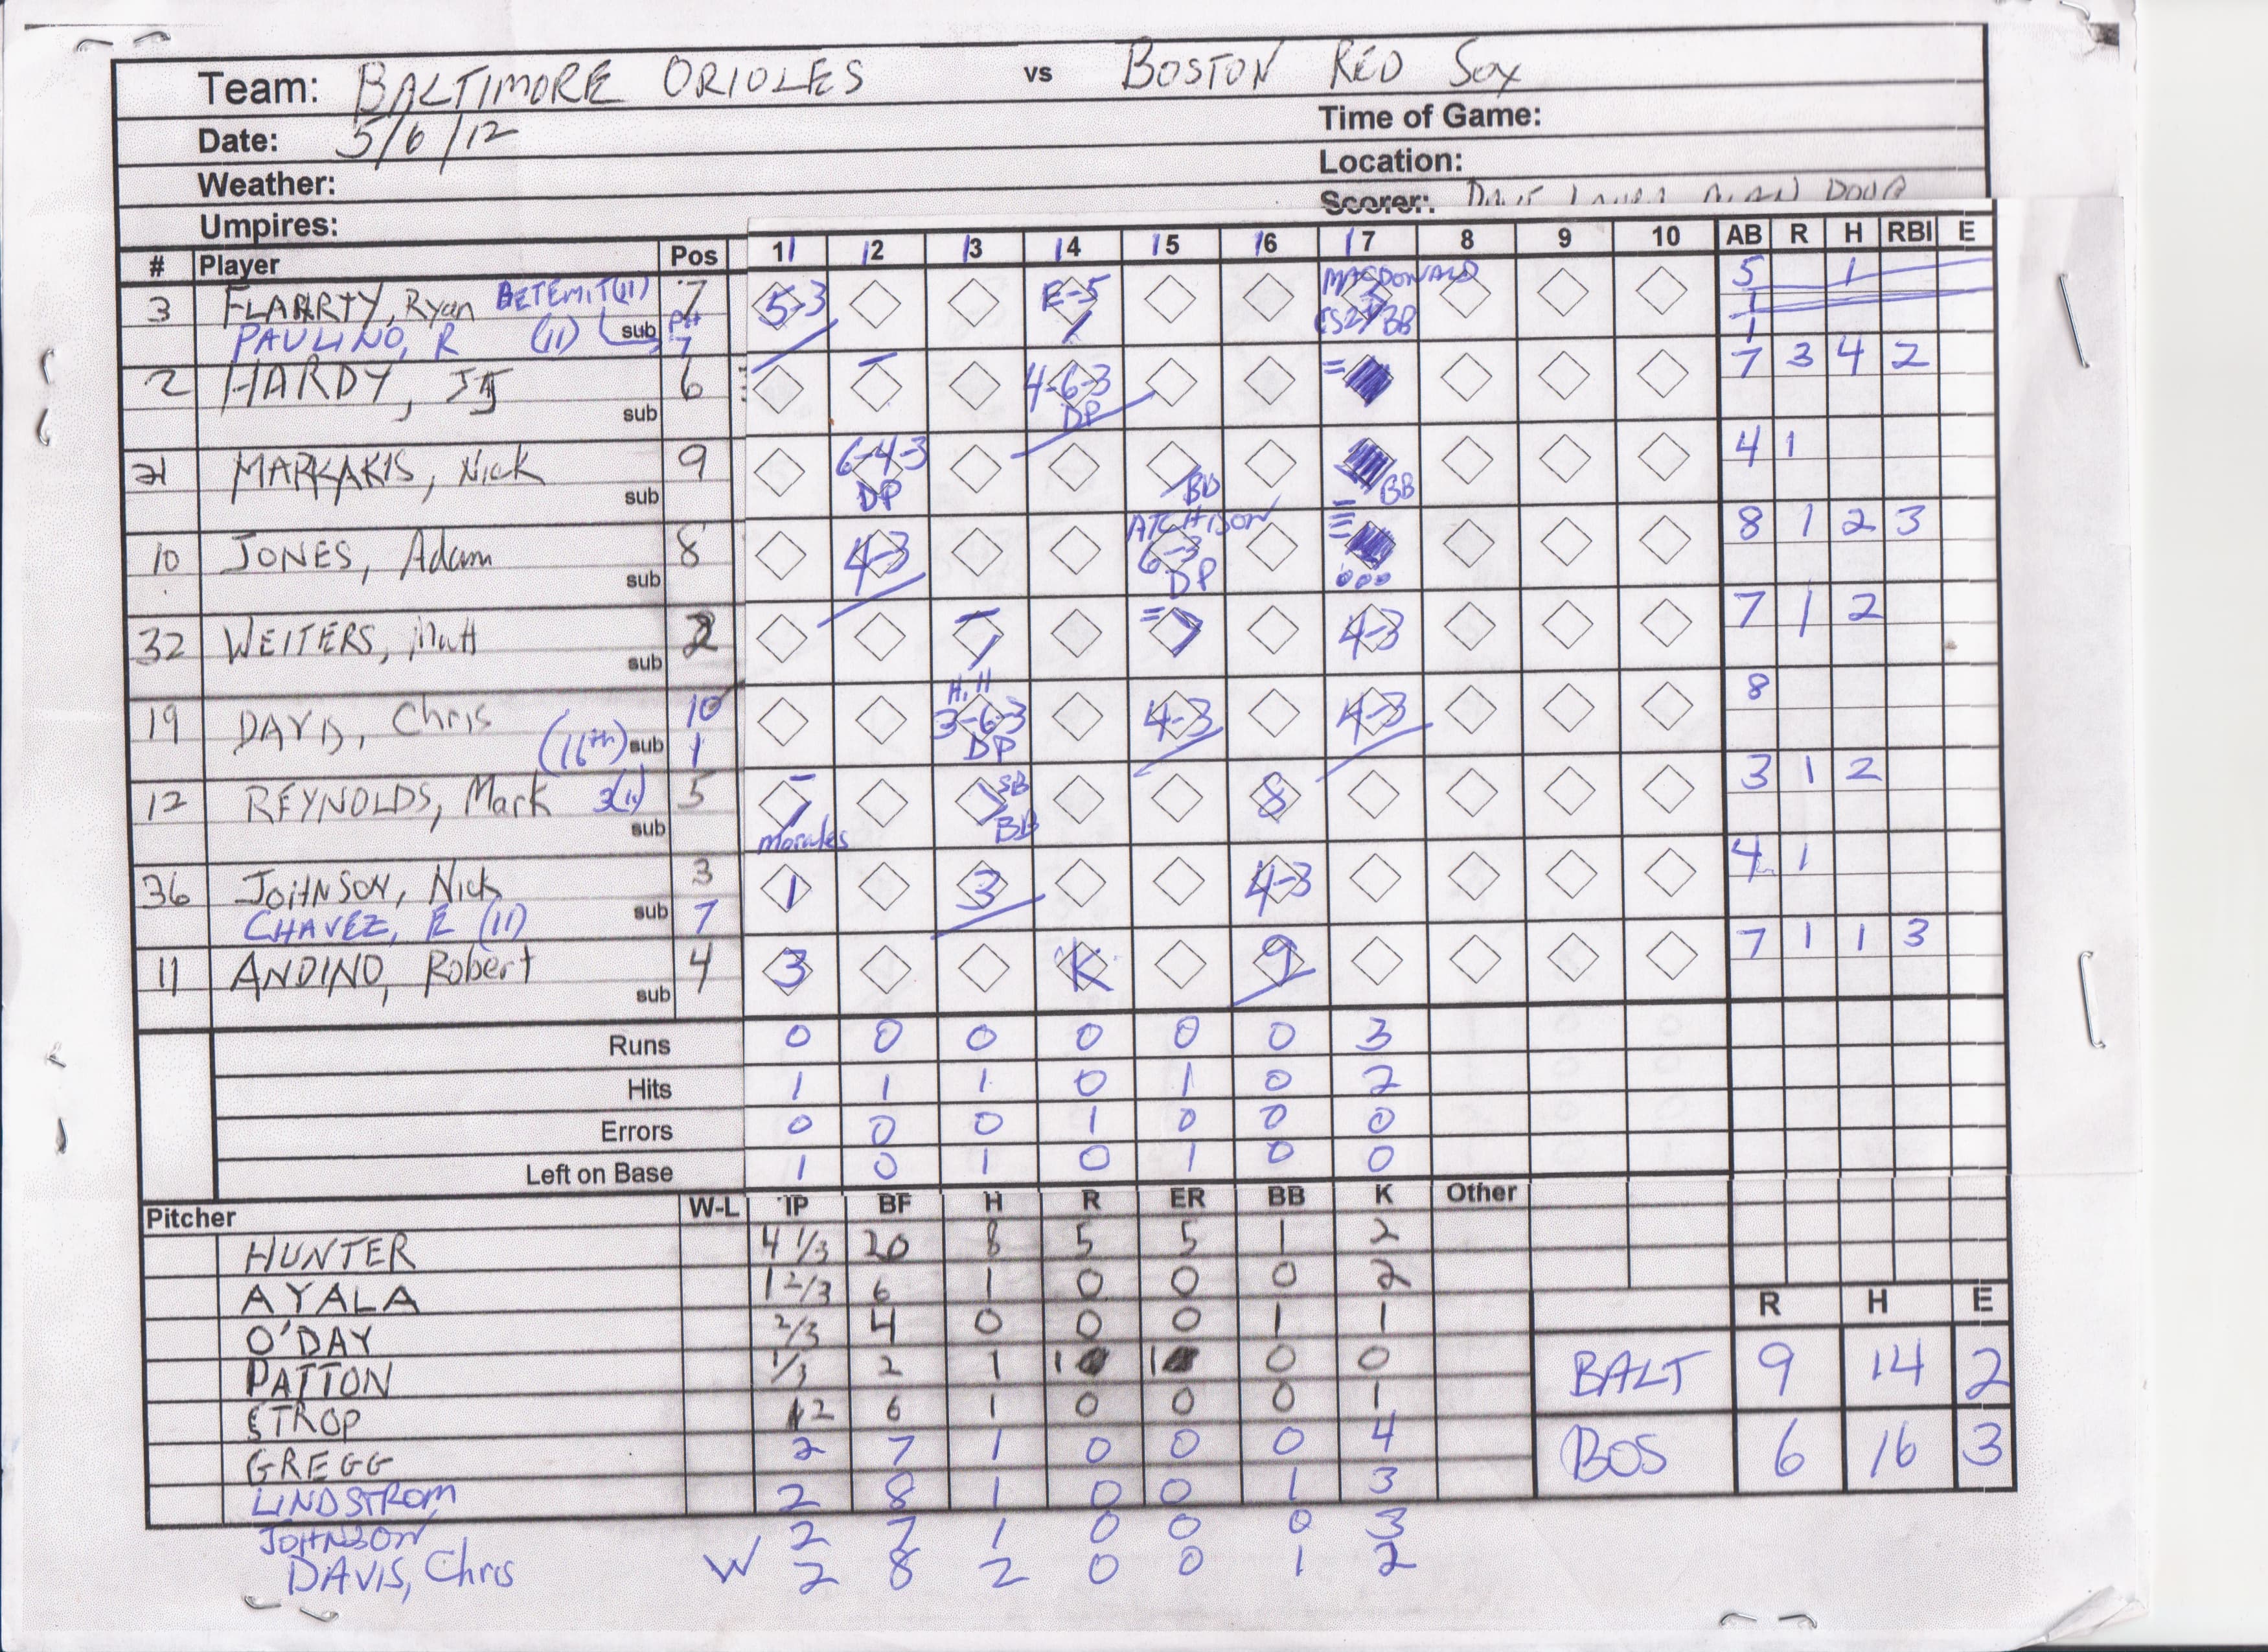 Team: BALTIMORE ORIOLES vs BOSTON RED Sox
Date: 5/6/12 Time of Game:
Weather: Location:
Umpires: Scorer: DAVE LAURA ALAN DOUG
# Player Pos 11 12 13 14 15 16 17 8 9 10 AB R H RBI E
3 FLAHRTY, Ryan BETEMIT (11) 7 5-3 E-5 MACDONALD CS2 BB 5 1
PAULINO, R (11) sub PH 7 1 1
2 HARDY, JJ 6 4-6-3 DP 7 3 4 2
sub
21 MARKAKIS, Nick 9 6-4-3 DP BB BB 4 1
sub
10 JONES, Adam 8 4-3 ATCHISON 6-3 DP 8 1 2 3
sub
32 WEITERS, Matt 2 4-3 7 1 2
sub
19 DAVIS, Chris 10 H, H 3-6-3 DP 4-3 4-3 8
(16th) sub 1
12 REYNOLDS, Mark 3(11) 5 Morales SB BB 8 3 1 2
sub
36 JOHNSON, Nick 3 1 3 4-3 4 1
CHAVEZ, E (11) sub 7
11 ANDINO, Robert 4 3 K 9 7 1 1 3
sub
Runs 0 0 0 0 0 0 3
Hits 1 1 1 0 1 0 2
Errors 0 0 0 1 0 0 0
Left on Base 1 0 1 0 1 0 0
Pitcher W-L IP BF H R ER BB K Other
HUNTER 4 1/3 20 8 5 5 1 2
AYALA 1 2/3 6 1 0 0 0 2
O'DAY 2/3 4 0 0 0 1 1
PATTON 1/3 2 1 1 1 0 0
STROP 2 6 1 0 0 0 1
GREGG 2 7 1 0 0 0 4
LINDSTROM 2 8 1 0 0 1 3
JOHNSON 2 7 1 0 0 0 3
DAVIS, Chris W 2 8 2 0 0 1 2
R H E
BALT 9 14 2
BOS 6 16 3